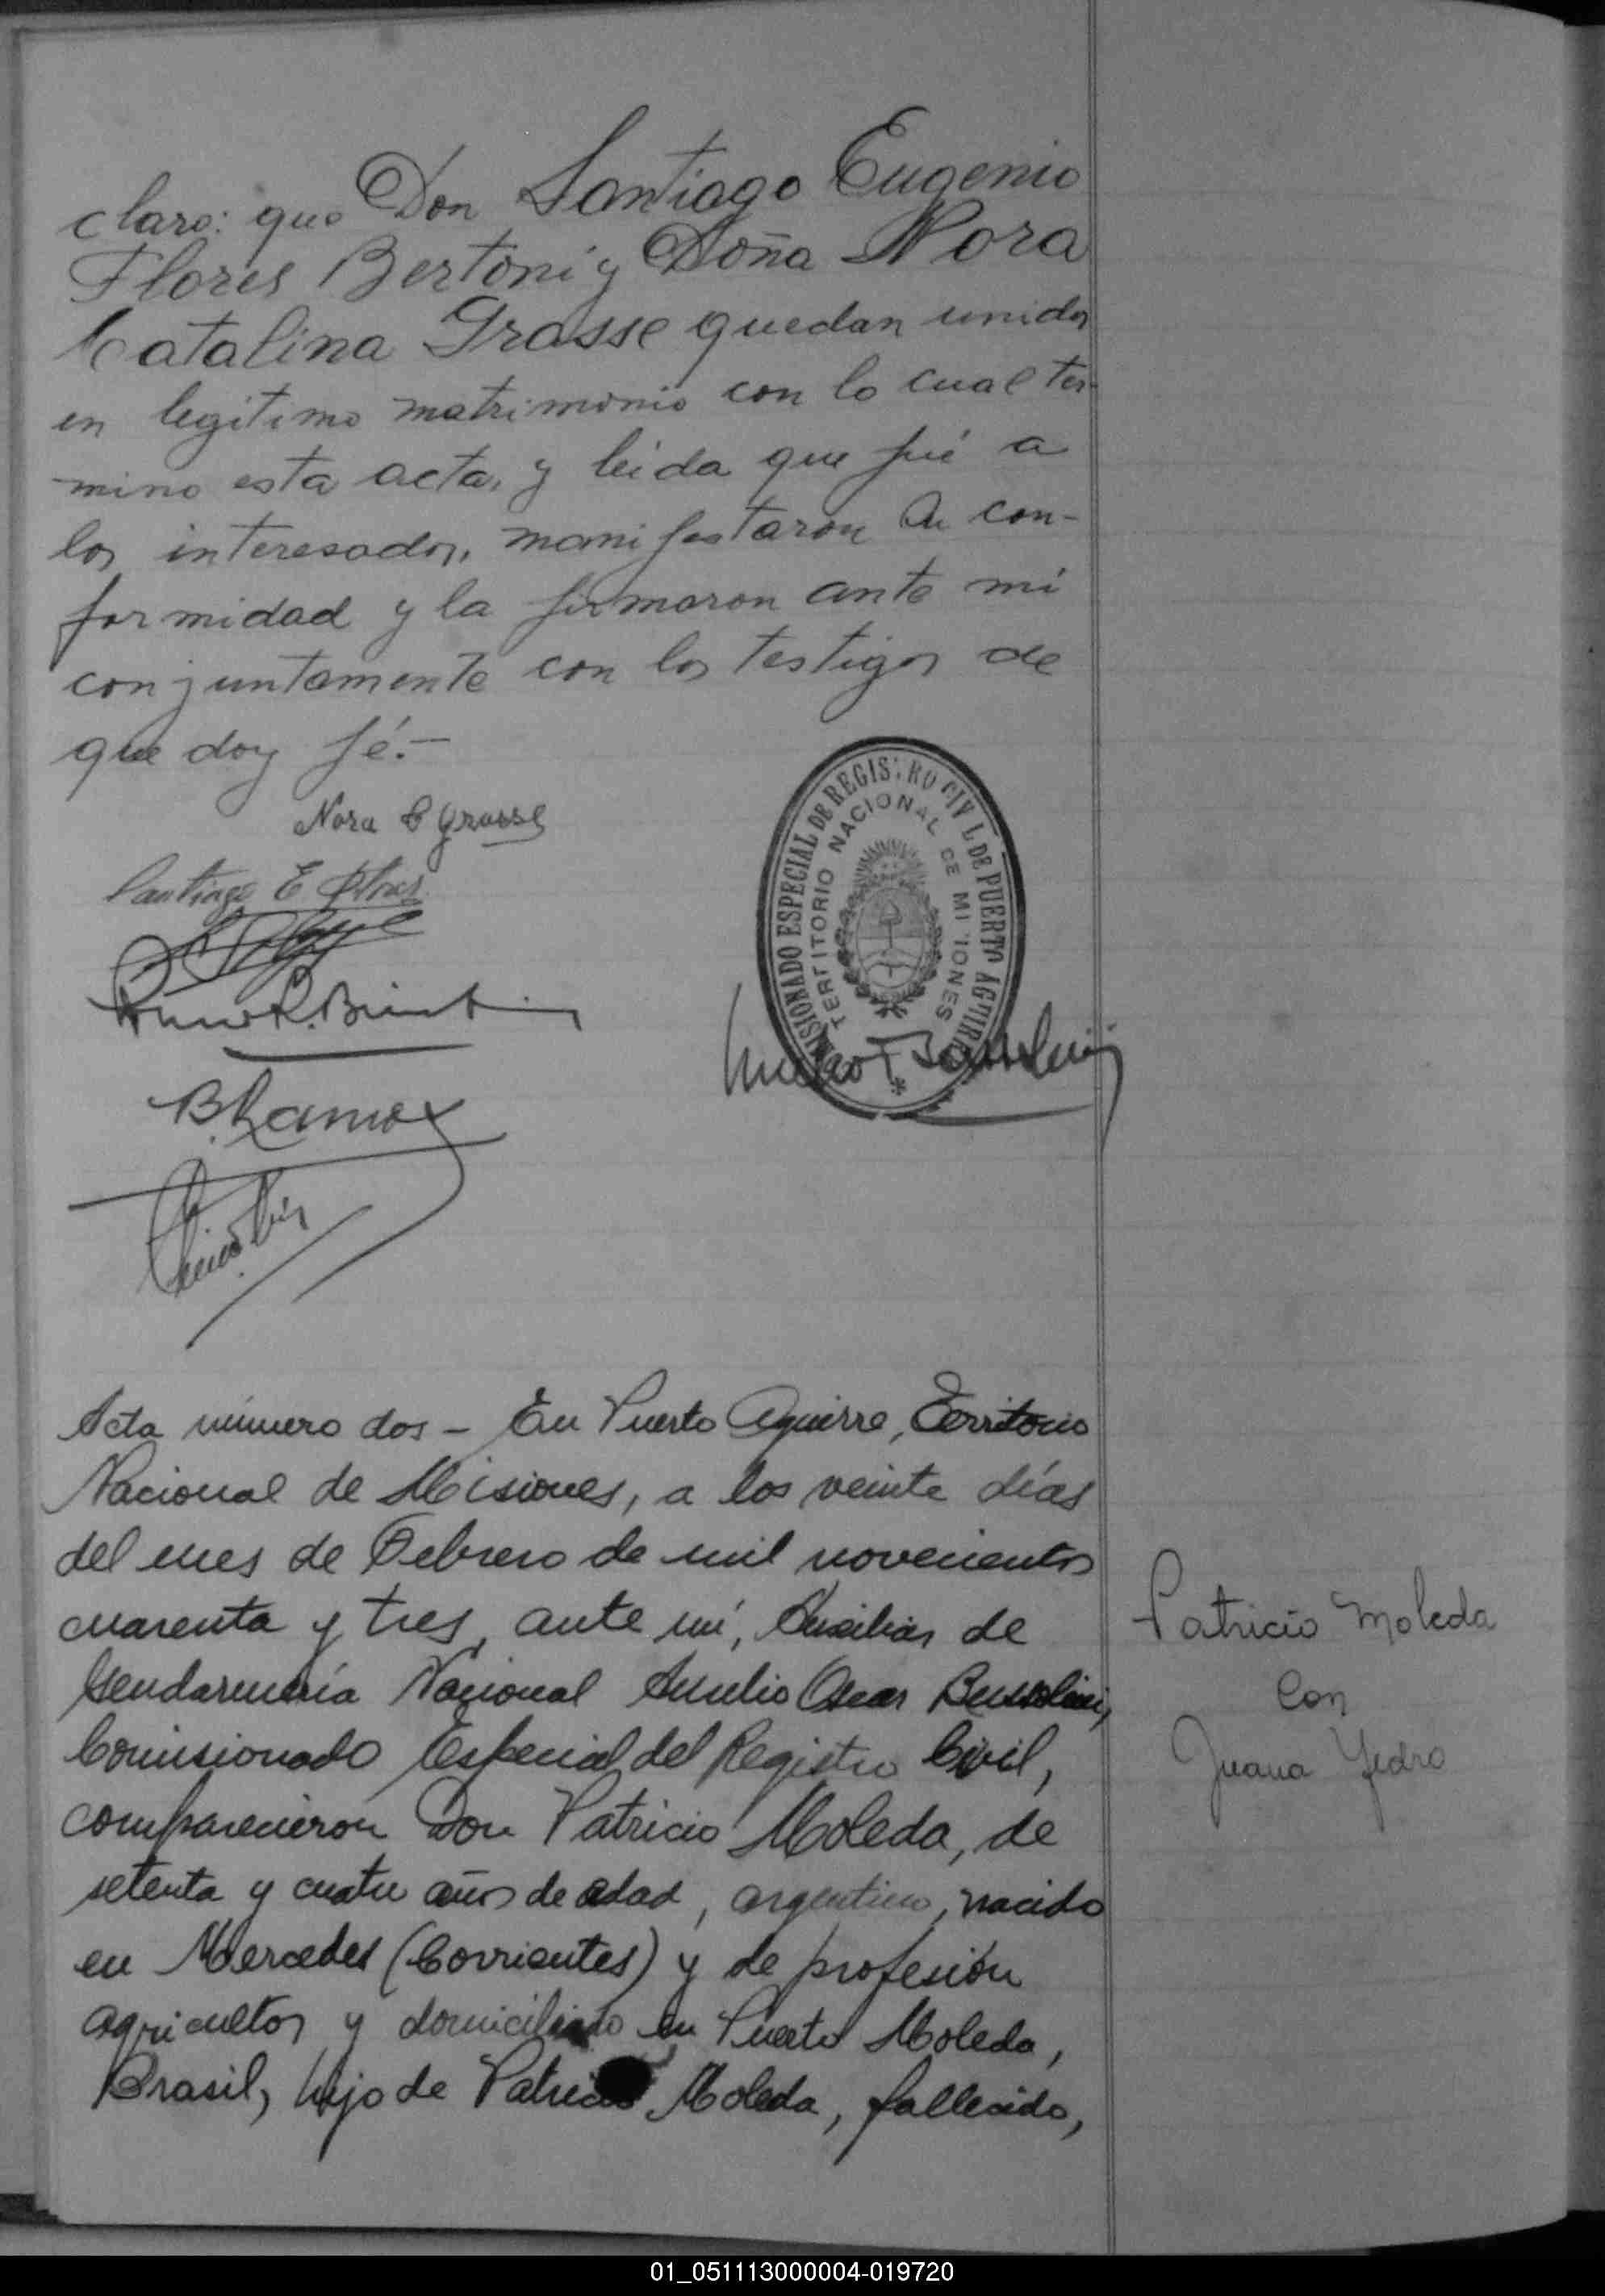 claro: que Don Santiago Eugenio
Flores Bertoni y Doña Nora
Catalina Grasse quedan unidos
en legitimo matrimonio con lo cual ter-
mino esta acta, y leida que fué a
los interesados, manifestaron su con-
formidad y la firmaron ante mi
conjuntamente con los testigos de
que doy fé.-
Nora C Grasse
Santiago E Flores
B. Ramos
COMISIONADO ESPECIAL DE REGISTRO CIVIL DE PUERTO AGUIRRE
TERRITORIO NACIONAL DE MISIONES
Acta número dos - En Puerto Aguirre, Territorio
Nacional de Misiones, a los veinte días
del mes de Febrero de mil novecientos
cuarenta y tres, ante mí, Auxiliar de
Gendarmería Nacional Aurelio Oscar Bussolini,
Comisionado Especial del Registro Civil,
comparecieron Don Patricio Moleda, de
setenta y cuatro años de edad, argentino, nacido
en Mercedes (Corrientes) y de profesión
agricultor y domiciliado en Puerto Moleda,
Brasil, hijo de Patricio Moleda, fallecido,
Patricio Moleda
Con
Juana Yedro
01_051113000004-019720